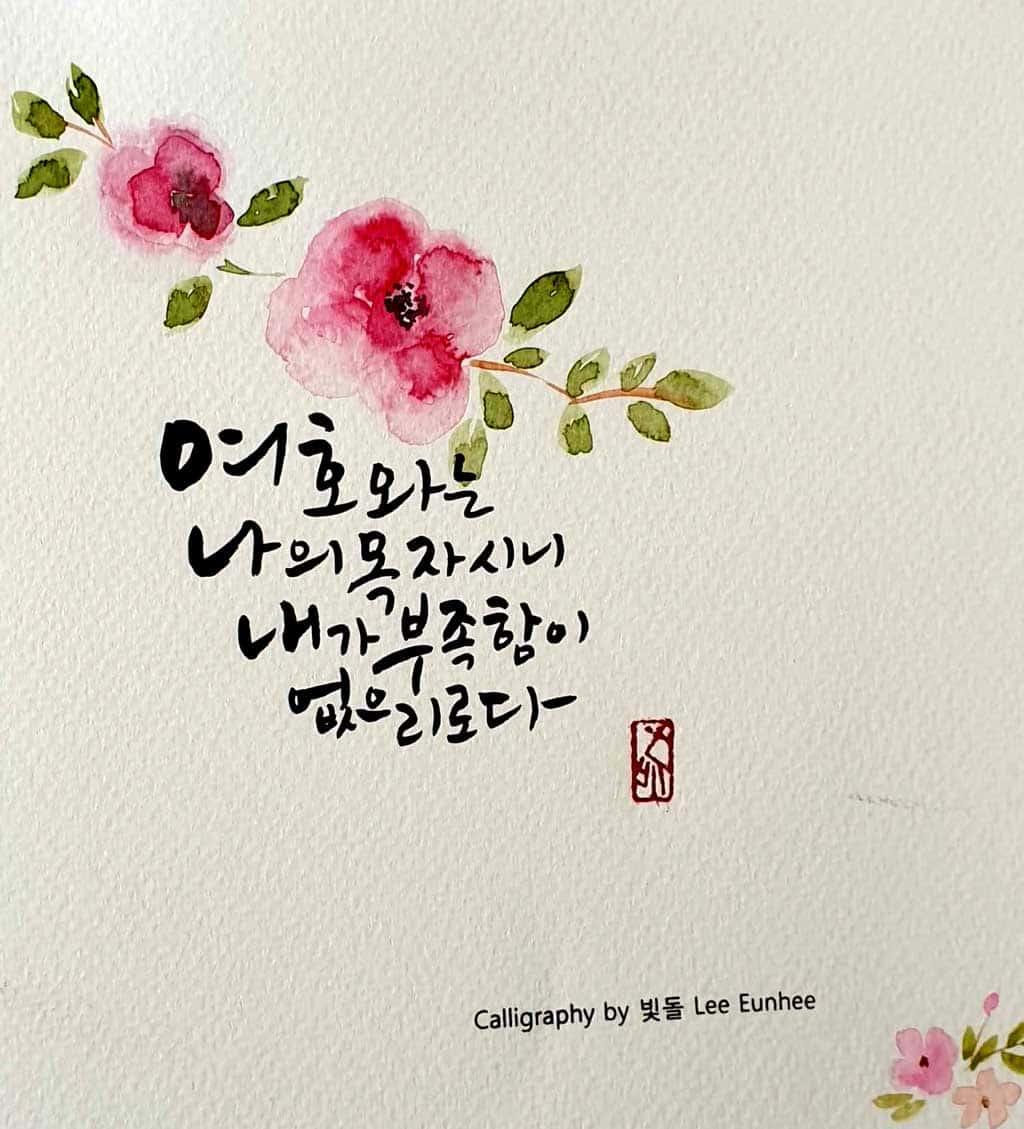 여호와는
나의 목자시니
내가 부족함이
없으리로다
Calligraphy by 빛돌 Lee Eunhee